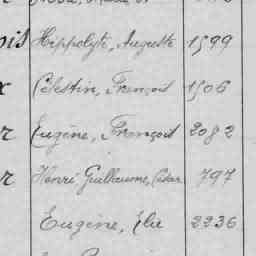 ois Hippolyte, Auguste 1599
x Célestin, François 1506
r Eugène, François 2082
r Henri Guillaume, César 797
Eugène, Élie 2236